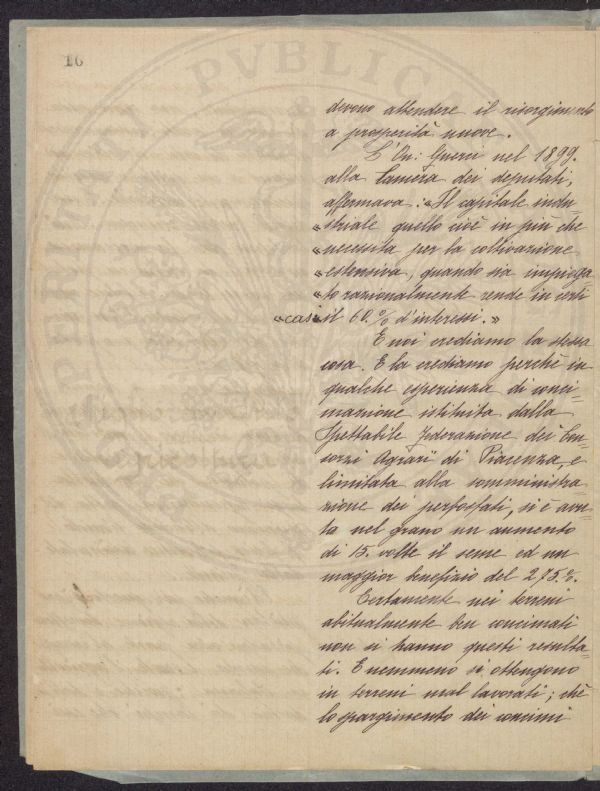 16
devono attendere il risorgimento
a prosperità nuove.
L'On: Guerci nel 1899.
alla Camera dei deputati,
affermava: "Il capitale indu=
"striale quello cioè in più che
"necessita per la coltivazione
"estensiva, quando sia impiega=
"to razionalmente rende in certi
"casi "il 60.% d'interessi."
E noi crediamo la stessa
cosa. E la crediamo perchè in
qualche esperienza di conci=
mazione istituita dalla
Spettabile Federazione dei Con
sorzi Agrari di Piacenza, e
limitata alla somministra=
zione dei perfosfati, si è avu=
ta nel grano un aumento
di 15. volte il seme ed un
maggior benefizio del 275.%.
Certamente nei terreni
abitualmente ben concimati
non si hanno questi resulta=
ti. E nemmeno si ottengono
in terreni mal lavorati; chè
lo spargimento dei concimi